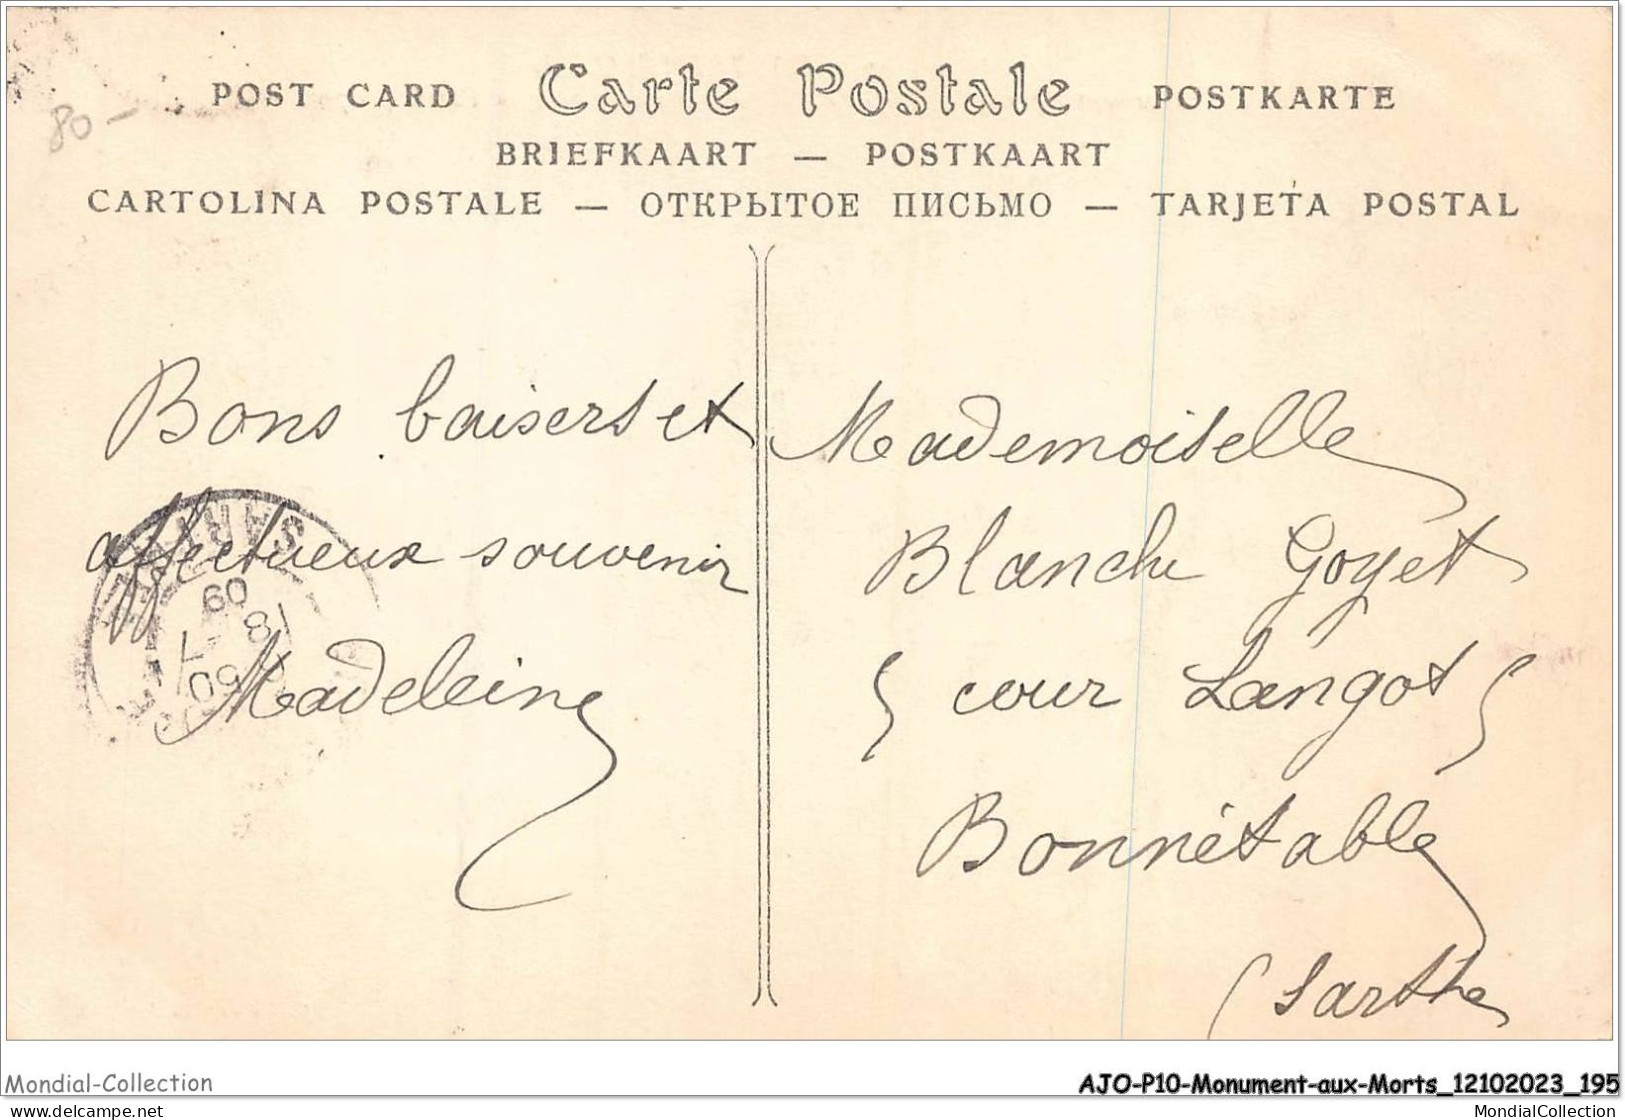 POST CARD Carte Postale POSTKARTE
BRIEFKAART — POSTKAART
CARTOLINA POSTALE — ОТКРЫТОЕ ПИСЬМО — TARJETA POSTAL
80 -
Bons baisers et
affectueux souvenir
Madeleine
Mademoiselle
Blanche Goyet
( cour Langot )
Bonnétable
( Sarthe
SARTHE
18 - 7
09
Mondial-Collection
AJO-P10-Monument-aux-Morts_12102023_195
www.delcampe.net
MondialCollection